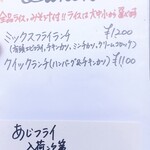 全品ライス、みそ汁付き!! ライスは大中小から選べます
ミックスフライランチ ¥1200
(有頭エビフライ、チキンカツ、ミンチカツ、クリームコロッケ)
クイックランチ(ハンバーグ&チキンカツ) ¥1100
あじフライ
入荷